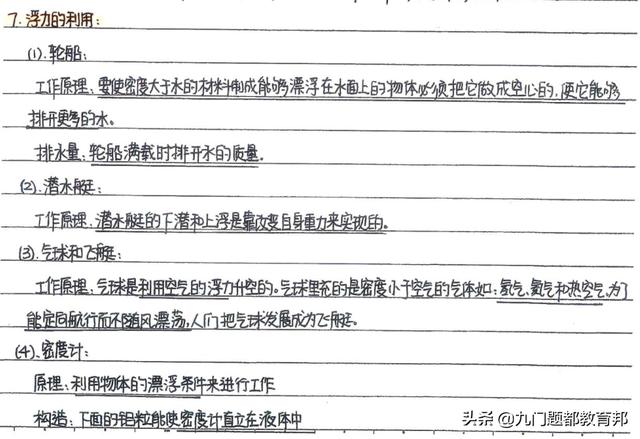 7.浮力的利用:
(1).轮船:
工作原理:要使密度大于水的材料制成能够漂浮在水面上的物体必须把它做成空心的,使它能够
排开更多的水。
排水量:轮船满载时排开水的质量.
(2).潜水艇:
工作原理.潜水艇的下潜和上浮是靠改变自身重力来实现的。
(3).气球和飞艇:
工作原理:气球是利用空气的浮力升空的。气球里充的是密度小于空气的气体如:氢气、氦气和热空气.为了
能定向航行而不随风漂荡,人们把气球发展成为飞艇。
(4).密度计:
原理:利用物体的漂浮条件来进行工作
构造:下面的铝粒能使密度计直立在液体中
头条 @九门题都教育邦